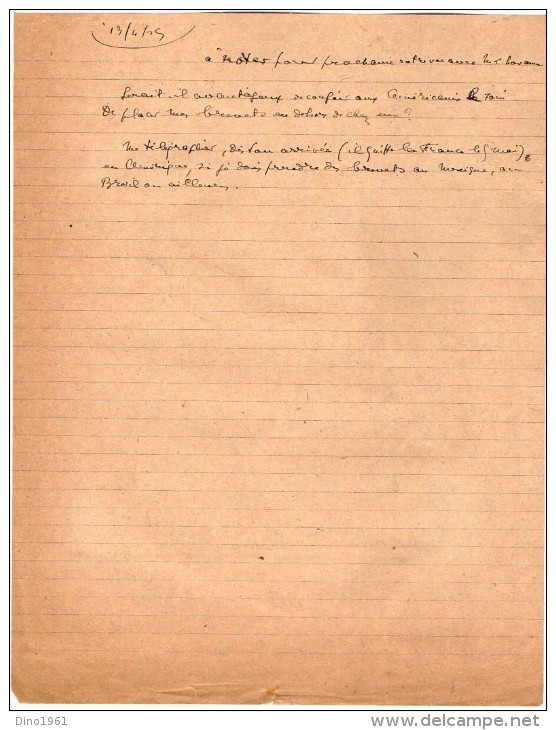 à noter pour prochaine
Serait il avantageux de confier aux Américains le soin
De placer mes brevets en dehors de chez eux ?
Me télégraphier, dès son arrivée (il quitte la France le 5 mai)
en Amérique, si je dois prendre des brevets au Mexique, au
Brésil ou ailleurs.
Dino1961
www.delcampe.net